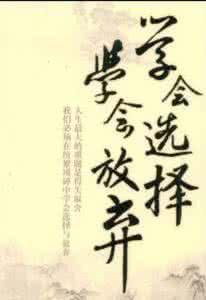 学会选择
学会放弃
人生最大的难题是得失取舍
我们必须在纷繁琐碎中学会选择与放弃